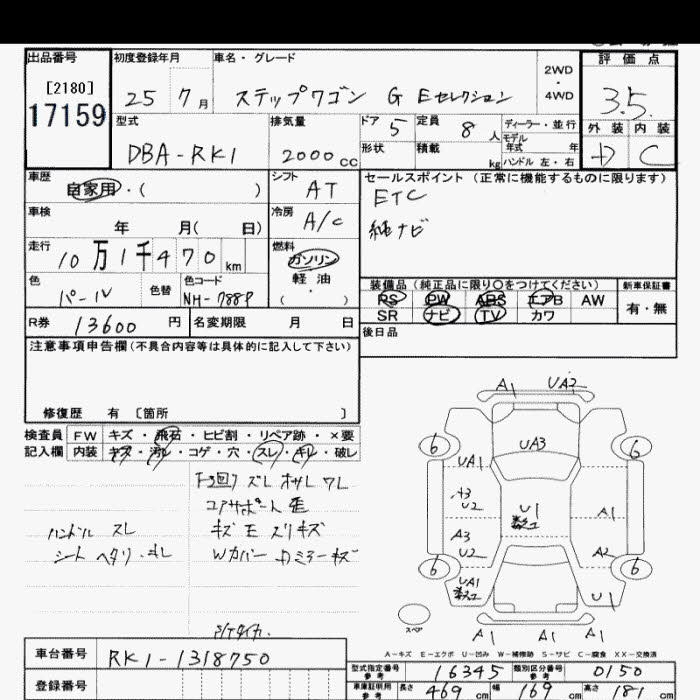 出品番号
[2180]
17159
初度登録年月
25 7月
車名・グレード
ステップワゴン G Eセレクション
2WD
・
4WD
評価点
3.5
外装 内装
D C
型式
DBA-RK1
排気量
2000cc
ドア 5
定員 8人
形状
積載 kg
ディーラー・並行
モデル年式 年
ハンドル 左・右
車歴
自家用・( )
シフト
AT
セールスポイント (正常に機能するものに限ります)
ETC
純ナビ
車検
年 月( 日)
冷房
A/C
走行
10万1千470km
燃料
ガソリン
軽油
( ・ )
色
パール
色替
色コード
NH-788P
装備品 (純正品に限り〇をつけてください)
PS PW ABS エアB AW
SR ナビ TV カワ
新車保証書
有・無
R券 13600円
名変期限 月 日
後日品
注意事項申告欄(不具合内容等は具体的に記入して下さい)
修復歴 有 〔箇所 〕
検査員記入欄
FW キズ・飛石・ヒビ割・リペア跡・×要
内装 キズ・汚レ・コゲ・穴・スレ・キレ・破レ
コアサポート歪
ハンドル スレ
シート ヘタリ・キレ
キズ
Wカバー
A1 UA2
6 6
UA3
UA1
A3
U2
U1
A1
A3
U2
A2
6 6
UA1
U1
スペア
A1 A1 A1
A-キズ E-エクボ U-凹み W-補修跡 S-サビ C-腐食 XX-交換済
車台番号 RK1-1318750
登録番号
型式指定番号 参考 16345
類別区分番号 参考 0150
車庫証明用 参考 長さ 469cm 幅 169cm 高さ 181cm